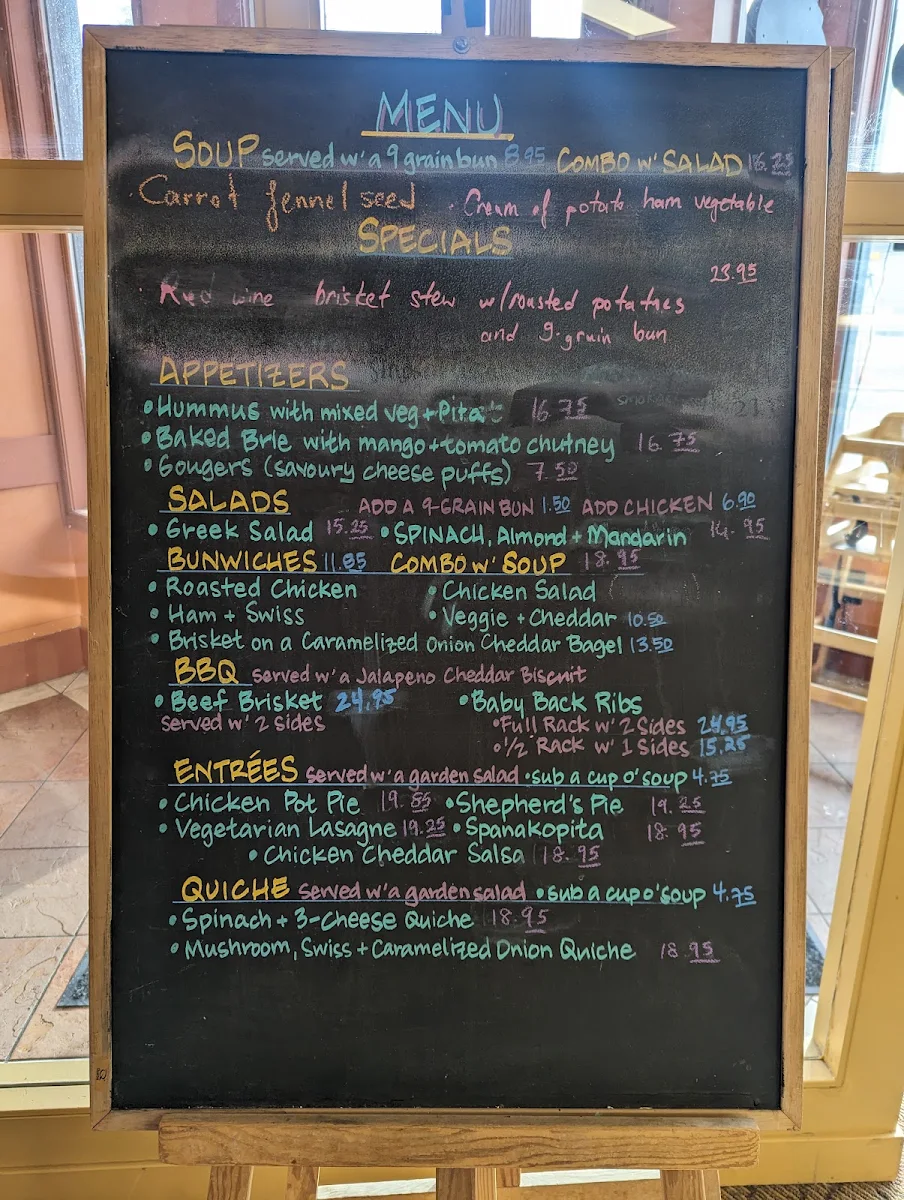 MENU
SOUP served w' a 9 grain bun 8.95 COMBO w' SALAD 16.25
Carrot fennel seed · Cream of potato ham vegetable
SPECIALS
23.95
· Red wine brisket stew w/roasted potatoes
and 9-grain bun
APPETIZERS
• Hummus with mixed veg + Pita 16.75
• Baked Brie with mango + tomato chutney 16.75
• Gougers (savoury cheese puffs) 7.50
SALADS ADD A 9-GRAIN BUN 1.50 ADD CHICKEN 6.90
• Greek Salad 15.25 • SPINACH, Almond + Mandarin 14.95
BUNWICHES 11.85 COMBO w' SOUP 18.95
• Roasted Chicken • Chicken Salad
• Ham + Swiss • Veggie + Cheddar 10.50
• Brisket on a Caramelized Onion Cheddar Bagel 13.50
BBQ served w' a Jalapeno Cheddar Biscuit
• Beef Brisket 24.95 • Baby Back Ribs
served w' 2 sides • Full Rack w' 2 Sides 24.95
• 1/2 Rack w' 1 Sides 15.25
ENTRÉES served w' a garden salad • sub a cup o' soup 4.75
• Chicken Pot Pie 19.85 • Shepherd's Pie 19.25
• Vegetarian Lasagne 19.25 • Spanakopita 18.95
• Chicken Cheddar Salsa 18.95
QUICHE served w' a garden salad • sub a cup o' soup 4.75
• Spinach + 3-Cheese Quiche 18.95
• Mushroom, Swiss + Caramelized Onion Quiche 18.95